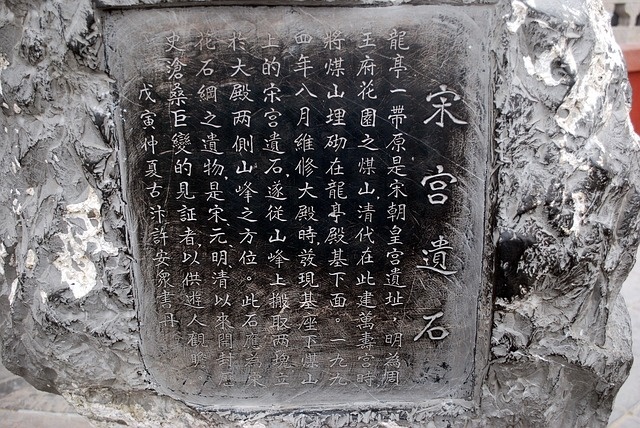 宋宫遺石
龍亭一帶原是宋朝皇宫遺址，明為周
王府花園之煤山，清代在此建萬壽宫時
將煤山埋砌在龍亭殿基下面。一九九
四年八月維修大殿時，發現基座下煤山
上的宋宫遺石，遂従山峰上搬取两塊立
於大殿两側山峰之方位。此石應為宋
花石綱之遺物，是宋、元、明、清以來開封歷
史滄桑巨變的見証者，以供遊人觀瞻
戊寅仲夏古汴許安衆書丹